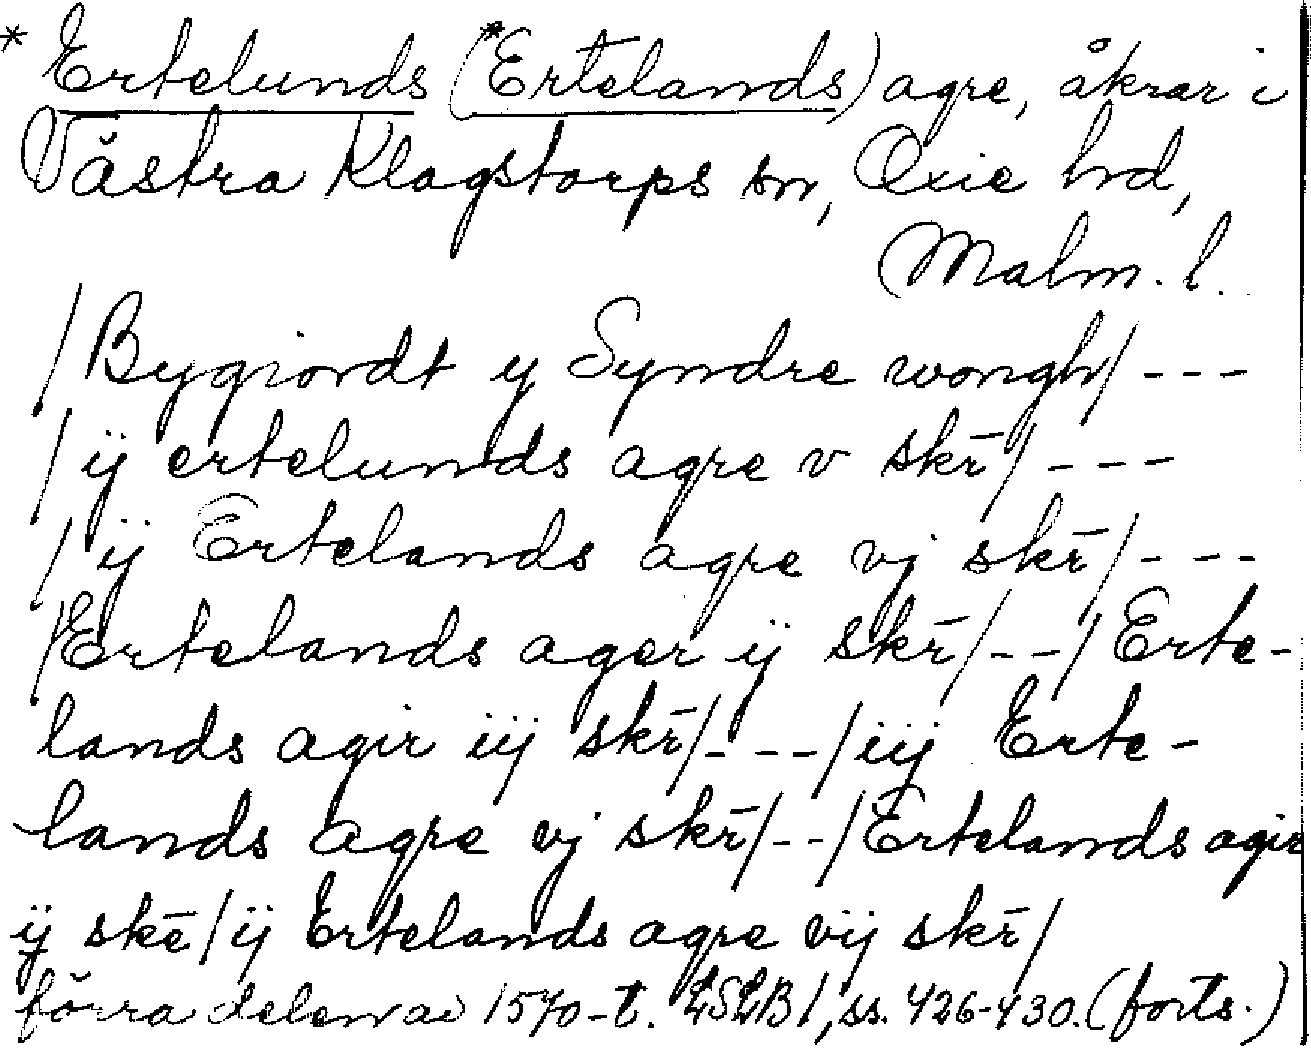 * Ertelunds (*Ertelands) agre, åkrar i
Västra Klagstorps sn, Oxie hd,
Malm. l.
/Bygiordt y Syndre wongh/ - - -
/ij ertelunds agre v skr̄/ - - -
/ij Ertelands agre vj skr̄/ - - -
/Ertelands ager ij skr̄/ - - /Erte-
lands agir iij skr̄/ - - - /iij Erte-
lands agre vj skr̄/ - - /Ertelands agir
ij skē/ij Ertelands agre vij skr̄/
förra delen av 1570-t. LSLB1, ss. 426-430. (forts.)